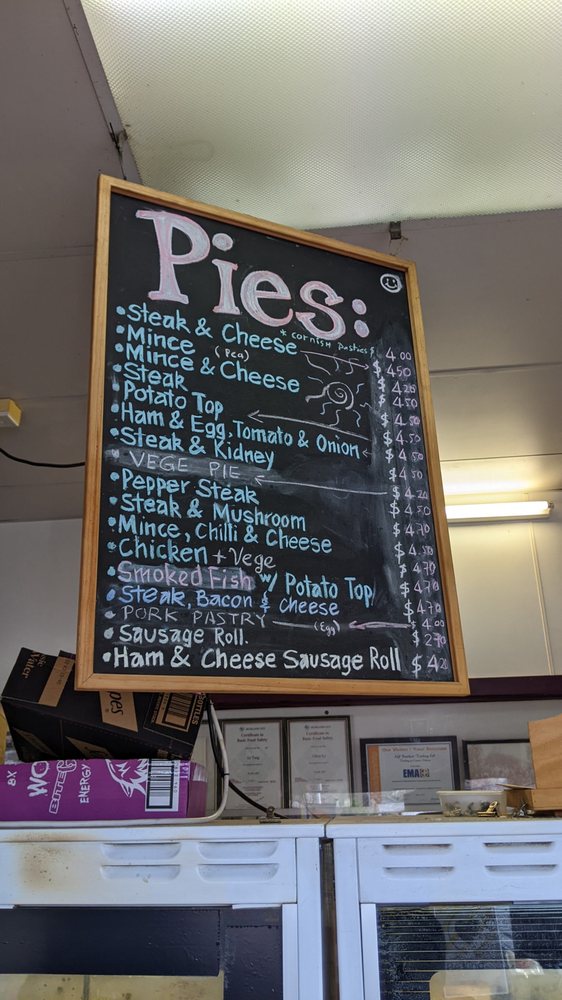 Pies:
* Cornish Pasties $ 4.00
• Steak & Cheese $ 4.50
• Mince (Pea) $ 4.20
• Mince & Cheese $ 4.50
• Steak $ 4.50
Potato Top $ 4.50
• Ham & Egg, Tomato & Onion $ 4.50
• Steak & Kidney $ 4.50
• VEGE PIE $ 4.20
• Pepper Steak $ 4.50
• Steak & Mushroom $ 4.70
• Mince, Chilli & Cheese $ 4.50
• Chicken + Vege $ 4.70
• Smoked Fish w/ Potato Top $ 4.70
• Steak, Bacon & Cheese $ 4.70
• PORK PASTRY (Egg) $ 4.00
• Sausage Roll. $ 2.70
• Ham & Cheese Sausage Roll $ 4.20
ENERGY
EMA